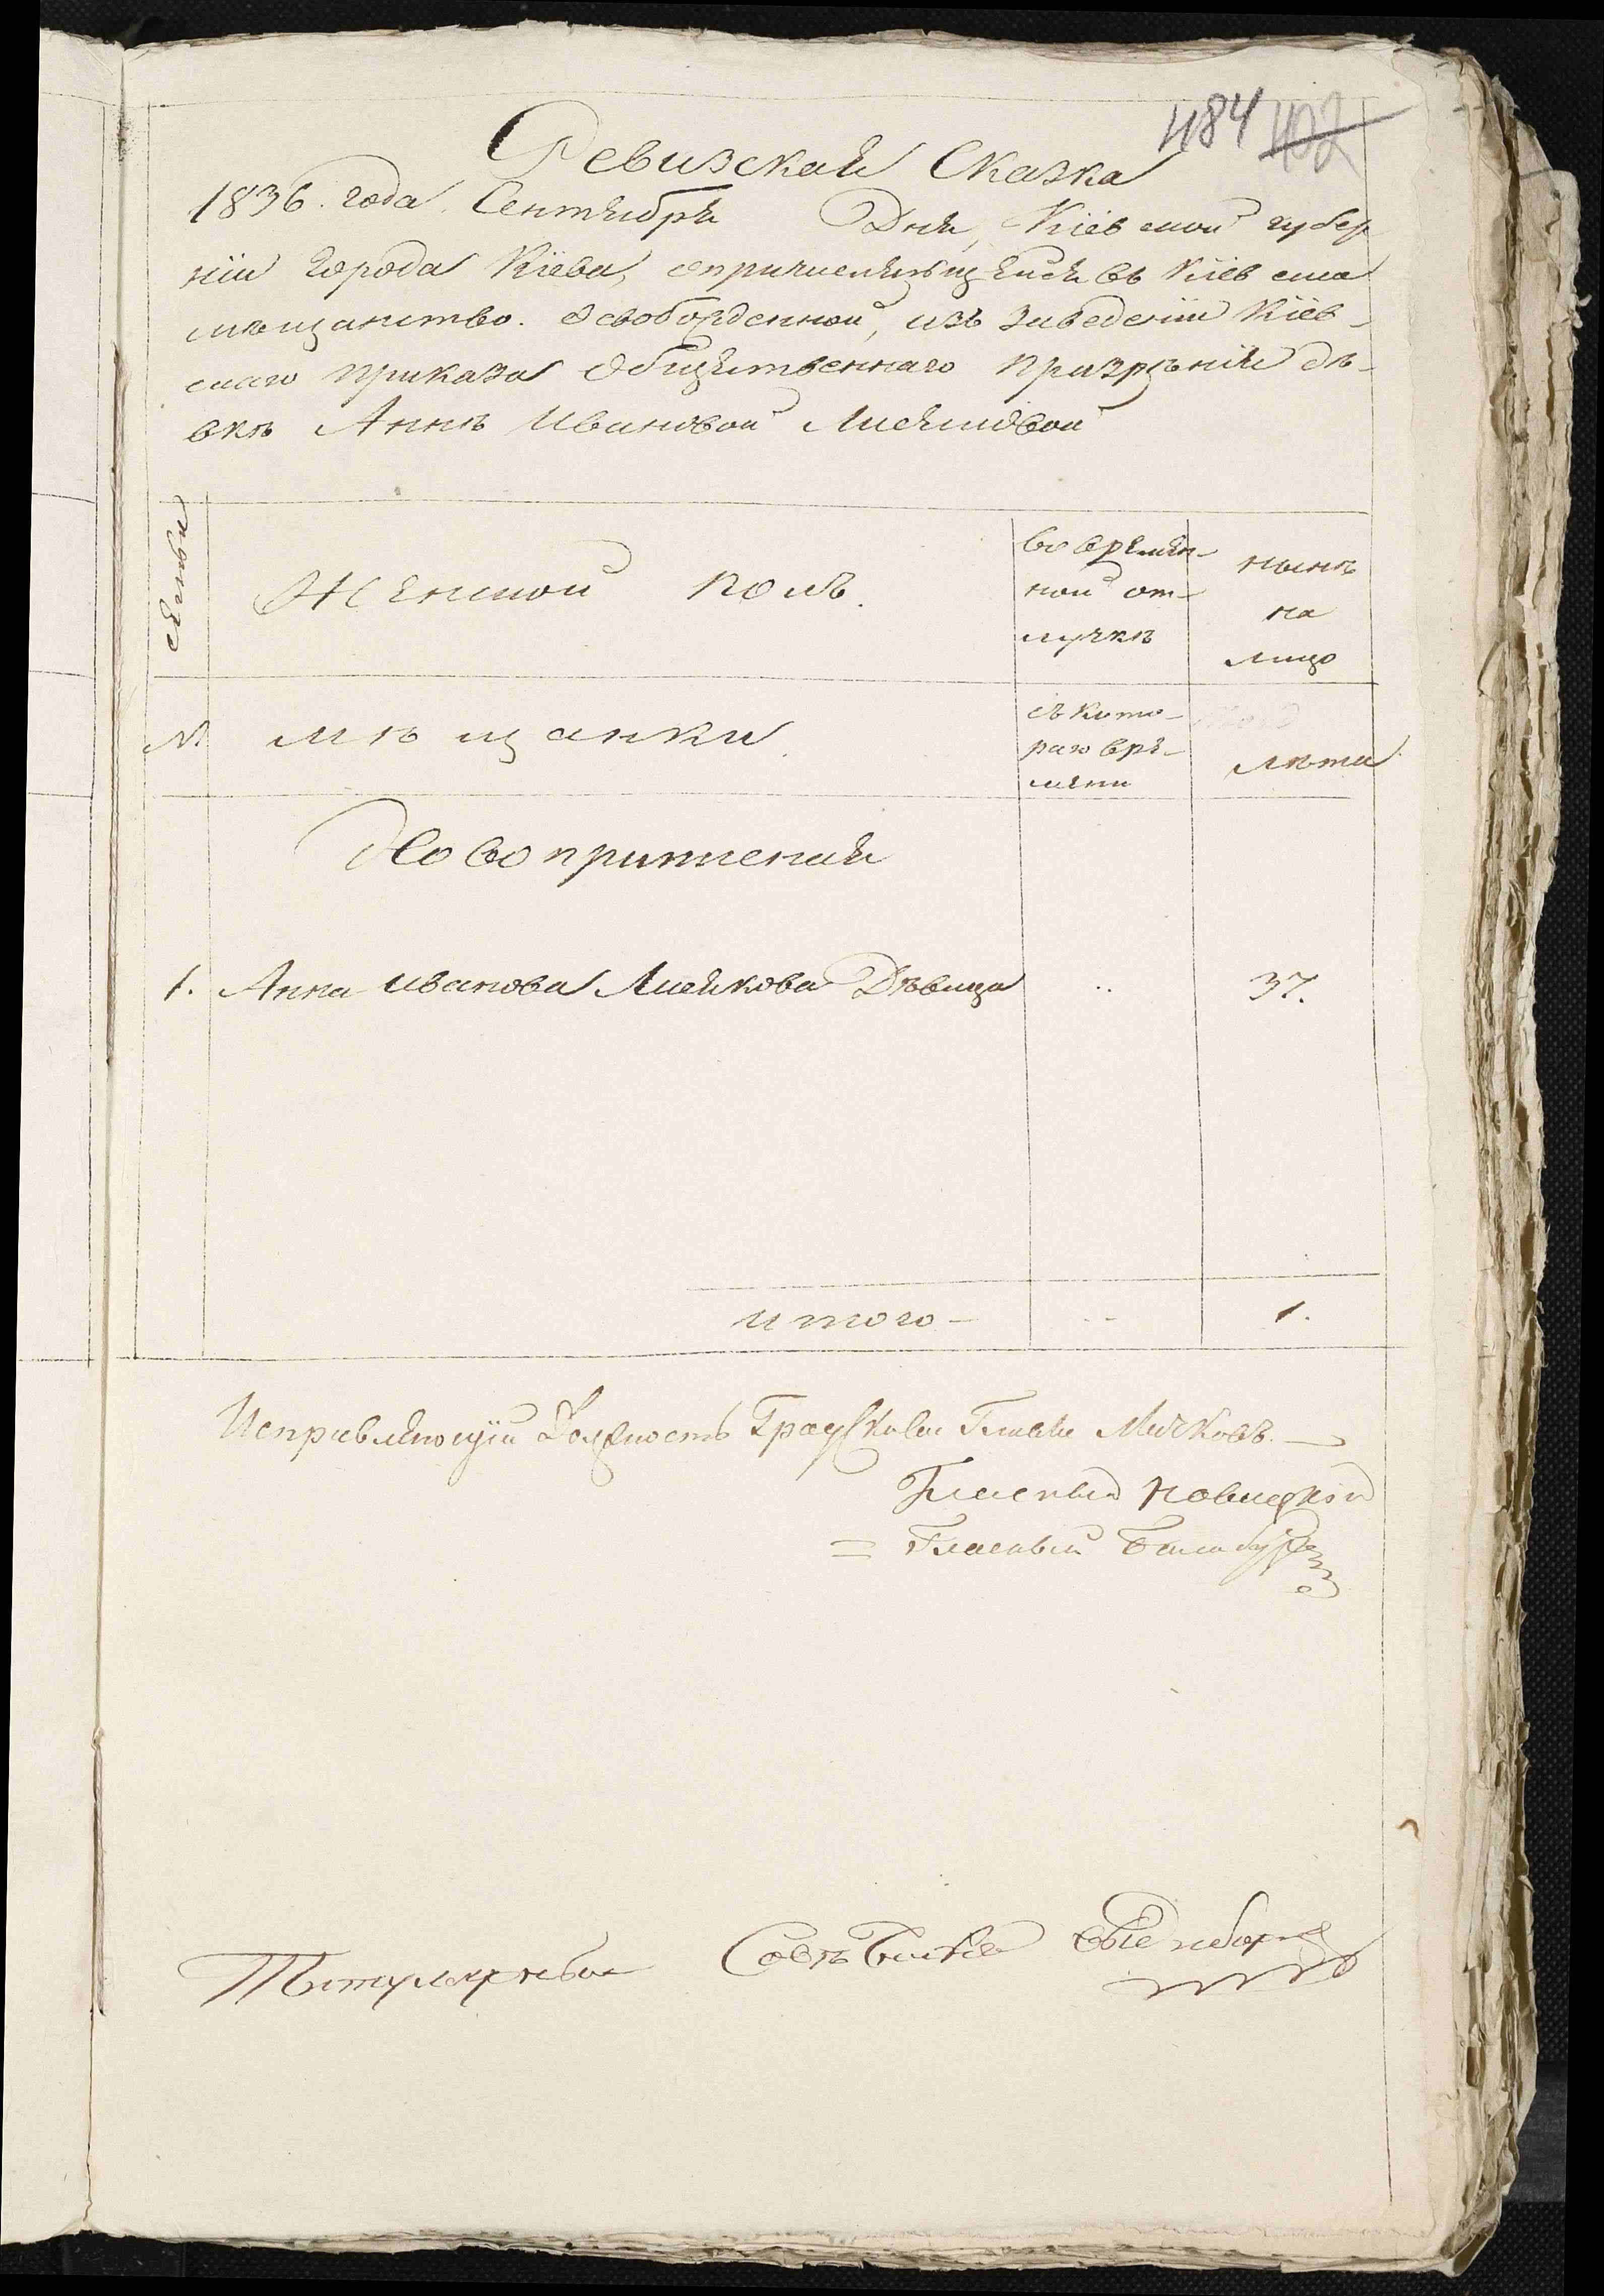 484 402
Ревизская Сказка
1836. года. Сентября Дня, Кіевской губер
ніи города Кіева, опричисляющейся въ Кіевское
мѣщанство. Освобожденной, изъ заведенія Кіев-
скаго приказа Общественнаго Призрѣнія дѣ-
вкѣ Аннѣ Ивановой
Семьи
Женской полъ.
во времян-
ной от-
лучкѣ
нынѣ
на
лицо
№ мѣщанки
съ кото-
раго вре-
мяни
лѣта
Новопричисленная
1. Анна Иванова Дѣвица .. 37.
итого - .. 1.
Исправляющій Должность Градскаго Главы
Гласный Новицкій
= Гласный
Титулярный Совѣтникъ